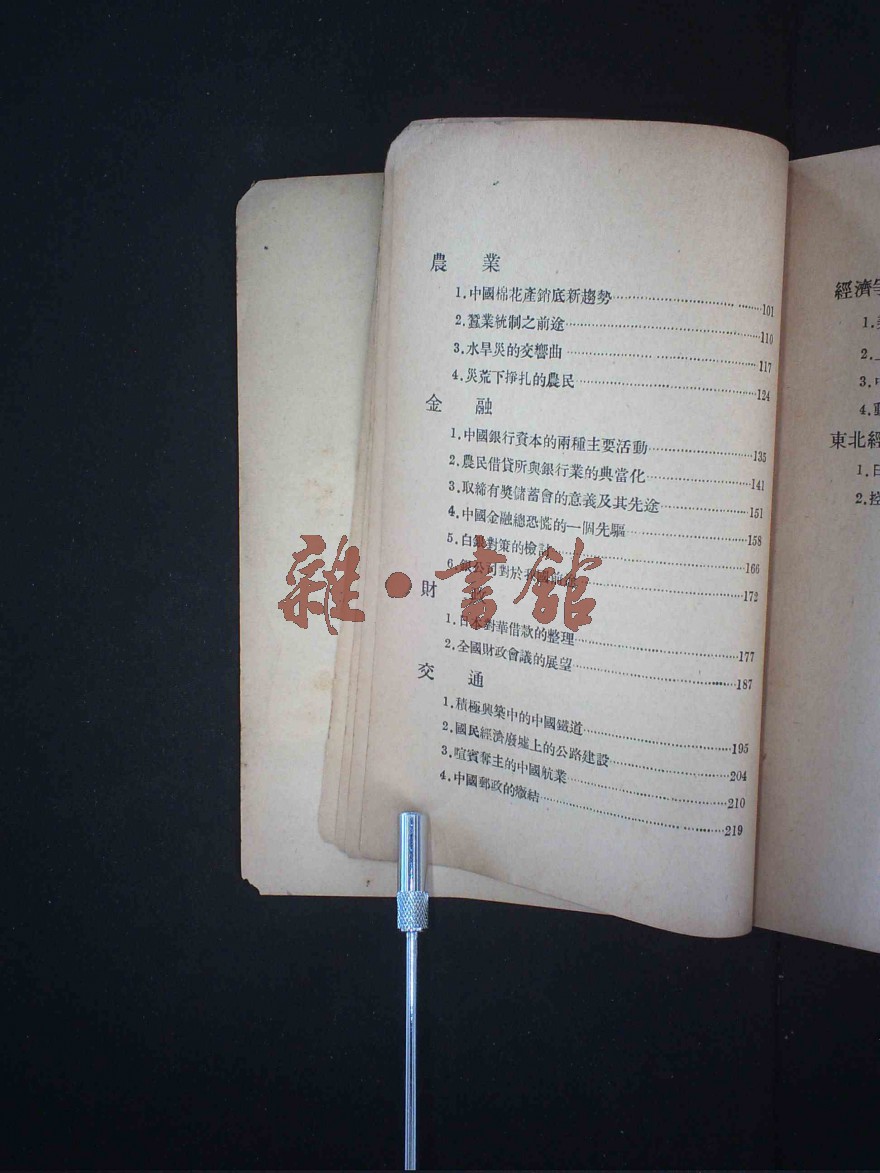 農業
1.中國棉花產銷底新趨勢 101
2.蠶業統制之前途 110
3.水旱災的交響曲 117
4.災荒下掙扎的農民 124
金融
1.中國銀行資本的兩種主要活動 135
2.農民借貸所與銀行業的典當化 141
3.取締有獎儲蓄會的意義及其先途 151
4.中國金融總恐慌的一個先驅 158
5.白銀對策的檢討 166
6.銀公司對於我國前途 172
財
1.日本對華借款的整理 177
2.全國財政會議的展望 187
交通
1.積極興築中的中國鐵道 195
2.國民經濟廢墟上的公路建設 204
3.喧賓奪主的中國航業 210
4.中國郵政的癥結 219
經濟
1.
2.
3.
4.
東北經
1.
2.控
雜·書館